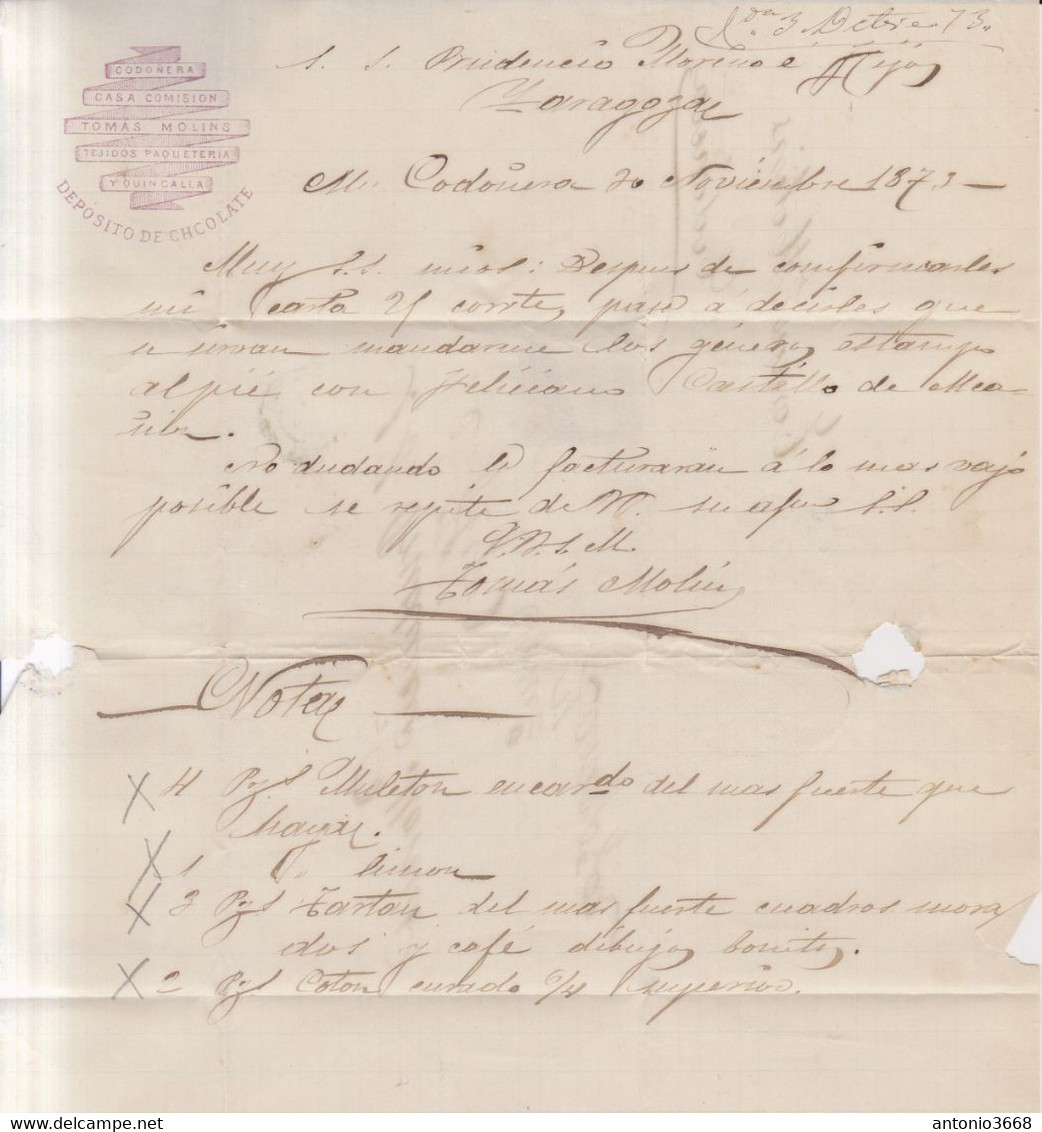 3 Dcbre 73
CODOÑERA
CASA COMISION
TOMAS MOLINS
TEJIDOS PAQUETERIA
Y QUINCALLA
DEPÓSITO DE CHCOLATE
S. S. Prudencio Moreno e Hijos
Zaragoza
Codoñera 30 Noviembre 1873
Muy S.S. mios: Despues de comfirmarles
mi carta 25 corrte, paso á decirles que
se sirvan mandarme los géneros estampo
al pié con Feliciano Castillo de Alca-
ñiz.
No dudando lo facturarán á lo mas vajo
posible se repite de V. su afmo S.S.
Q.B.S.M.
Tomás Molins
Nota
4 Pzs Muleton encardo del mas fuerte que
haya.
1 limon
3 Pzs Tartan del mas fuerte cuadros mora
dos y café dibujos bonitos.
2 Pzs Coton curado 6/4 superior.
antonio3668